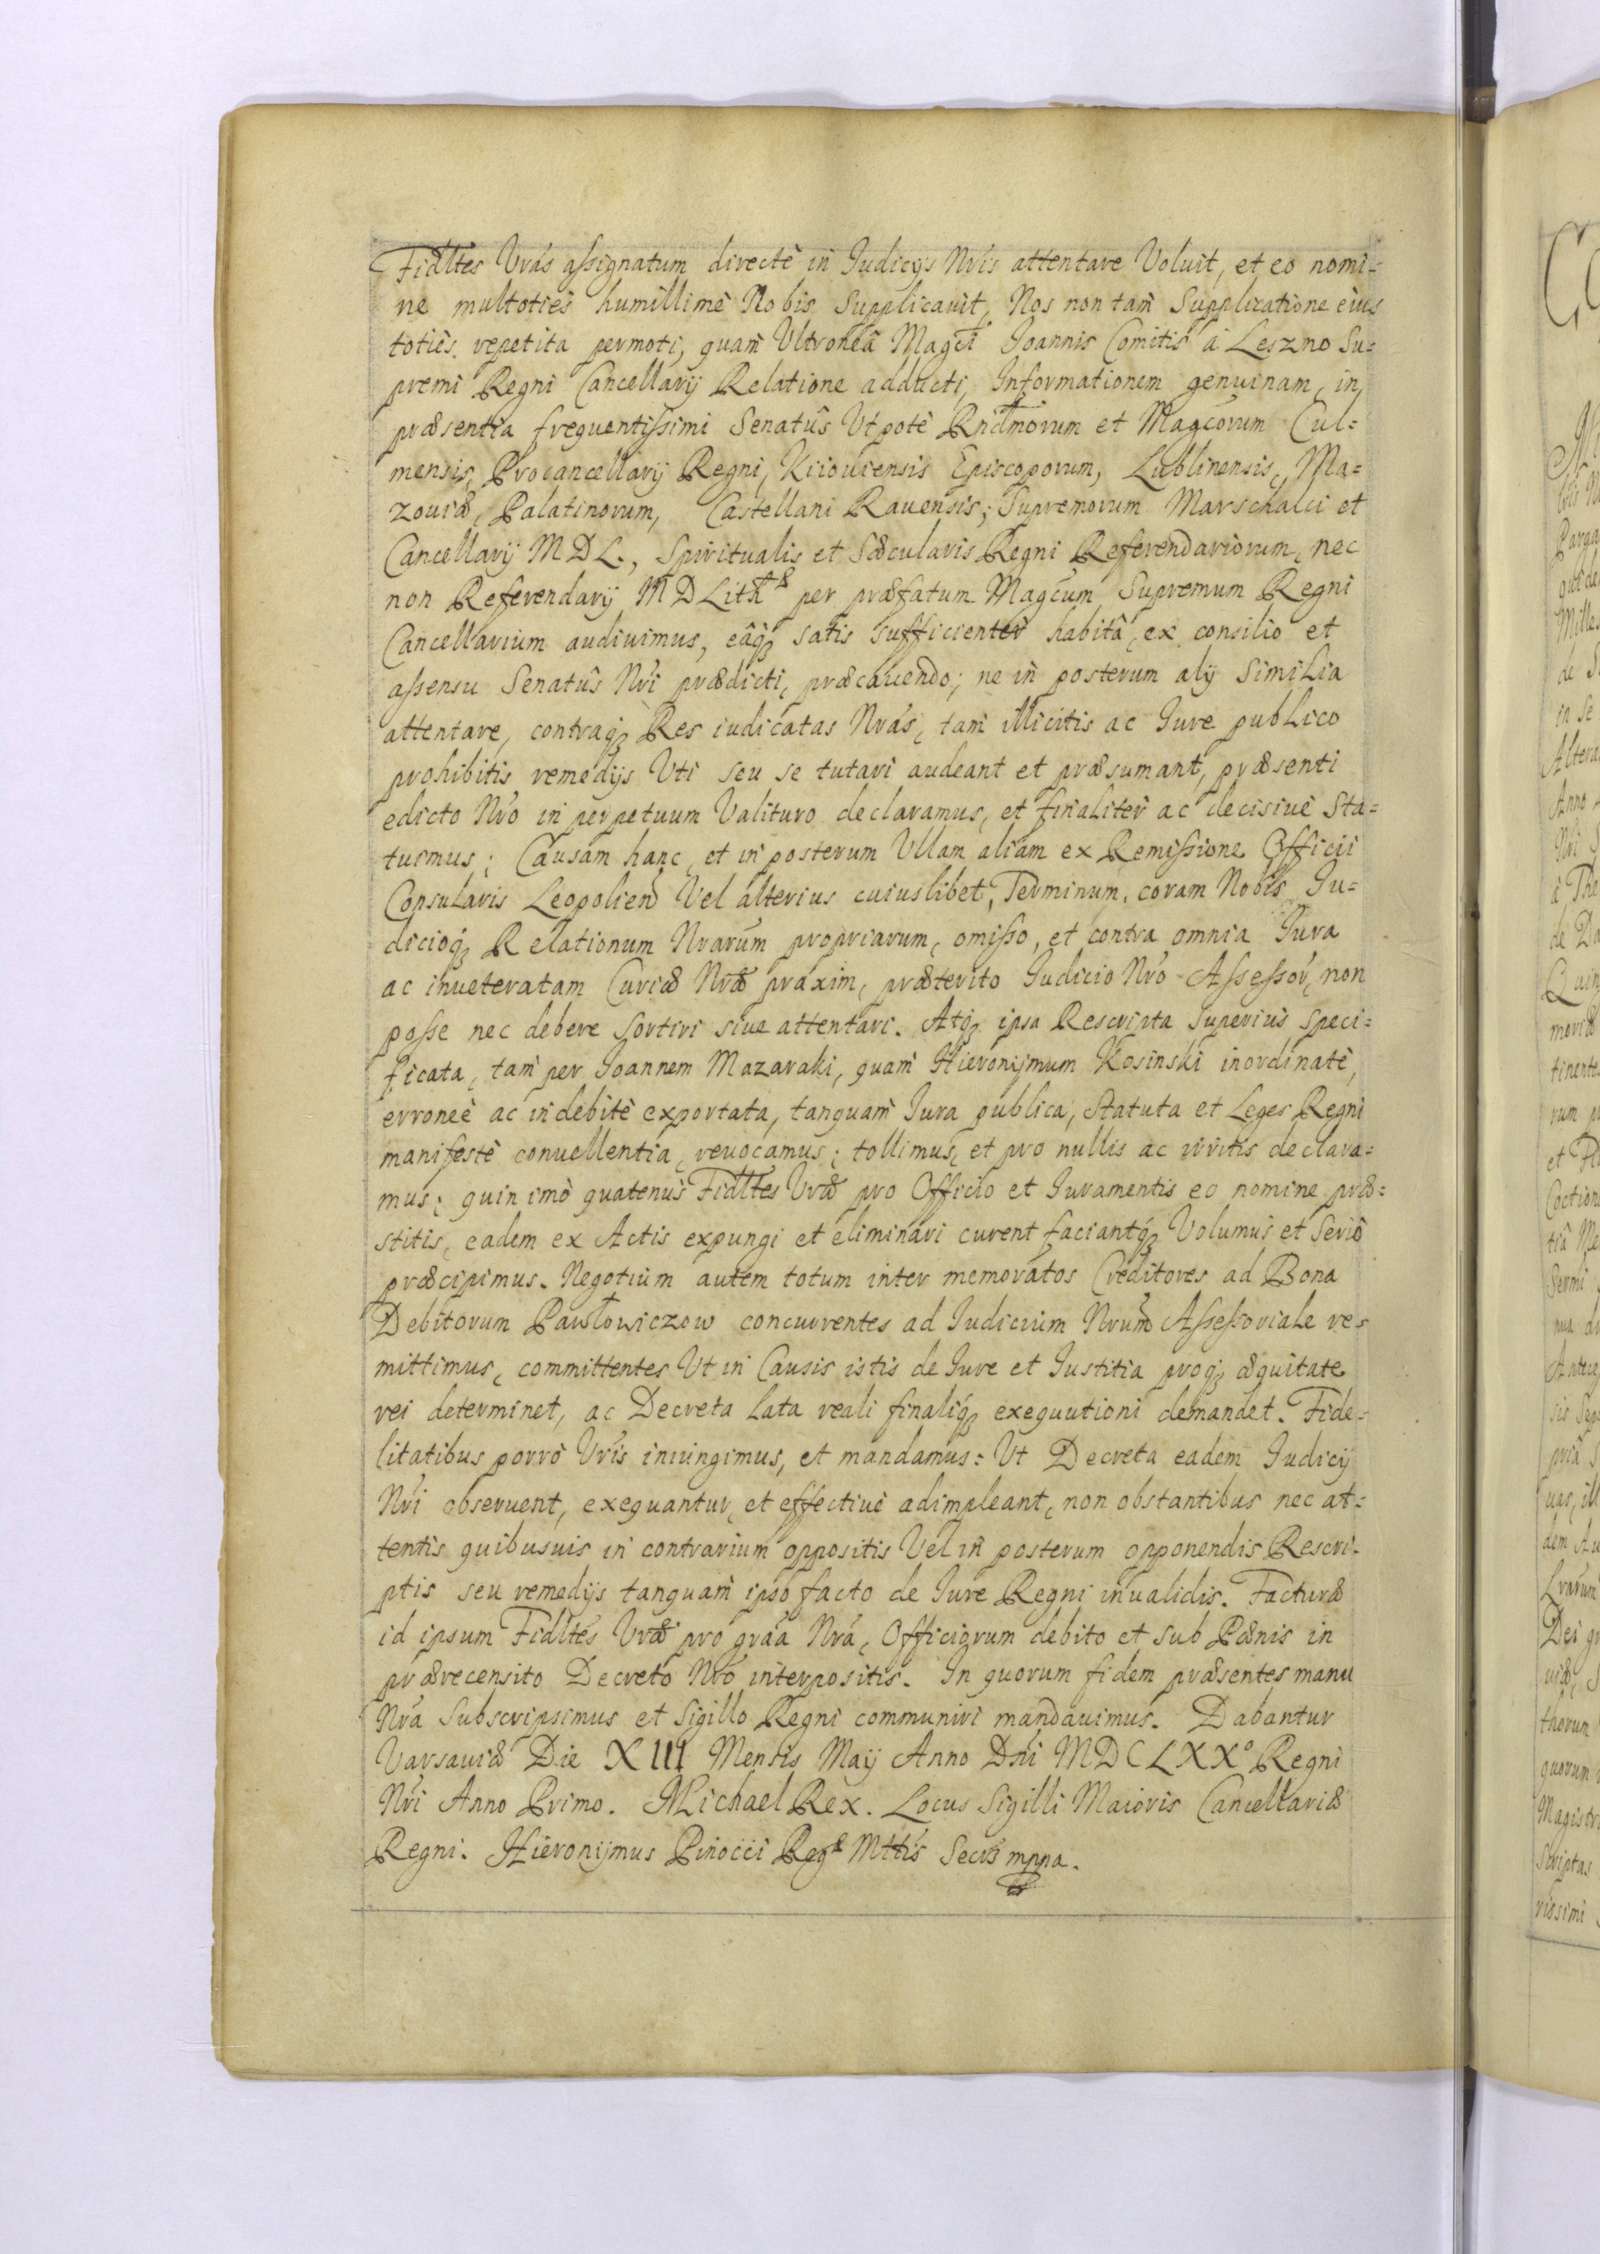 Fidltes Vrás assignatum directè in Judicijs Nrís attentare Voluit, et eo nomi-
ne multoties humillimè Nobis Supplicauit, Nos non tam̀ Supplicatione eius
toties repetita permoti, quam̀ Vltroneâ Magci Joannis Comitis à Leszno Su-
premi Regni Cancellarij Relatione adducti, Informationem genuinam, in
præsentia frequentissimi Senatûs Vtpotè Rndmorum et Magcorum Cul-
mensis, Procancellarij Regni, Kiiouiensis Episcoporum, Lublinensis, Ma-
zouiæ, Palatinorum, Castellani Rauensis; Supremorum Marschalci et
Cancellarij M D L., Spiritualis et Sæcularis Regni Referendariorum, nec
non Referendarij M D Lithæ per præfatum Magcum Supremum Regni
Cancellarium audiuimus, eâq; satis sufficienter habitâ, ex consilio et
assensu Senatûs Nri prædicti, præcauendo; ne in posterum alij Similia
attentare, contraq; Res iudicatas Nrás, tam̀ illicitis ac Jure publico
prohibitis remedijs Vti seu se tutari audeant et præsumant, præsenti
edicto Nró in perpetuum Valituro declaramus, et finaliter ac decisiuè Sta-
tuimus; Causam hanc, et in posterum Vllam aliam ex Remissione Officii
Consularis Leopolien Vel alterius cuiuslibet, Terminum coram Nobis Ju-
dicioq; Relationum Nrarum propriarum, omisso, et contra omnia Jura
ac inueteratam Curiæ Nræ praxim, præterito Judicio Nró Assessor, non
posse nec debere Sortiri siue attentari. Atq; ipsa Rescripta Superius Speci-
ficata, tam̀ per Joannem Mazaraki, quam̀ Hieronijmum Kosinski inordinatè,
erroneè ac indebitè exportata, tanquam̀ Jura publica, Statuta et Leges Regni
manifestè conuellentia, reuocamus; tollimus, et pro nullis ac irritis declara-
mus; quin imò quatenùs Fidltes Vræ pro Officio et Juramentis eo nomine præ-
stitis, eadem ex Actis expungi et eliminari curent faciantq; Volumus et Seriò
præcipimus. Negotium autem totum inter memoratos Creditores ad Bona
Debitorum Pawłowiczow concurrentes ad Judicium Nrum Assessoriale re-
mittimus, committentes Vt in Causis istis de Jure et Justitia proq; æquitate
rei determinet, ac Decreta Lata reali finaliq; exequutioni demandet. Fide-
litatibus porrò Vrís iniungimus, et mandamus: Vt Decreta eadem Judicij
Nri obseruent, exequantur, et effectiuè adimpleant, non obstantibus nec at-
tentis quibusuis in contrarium oppositis Vel in posterum opponendis Rescri-
ptis seu remedijs tanquam̀ ipso facto de Jure Regni inualidis. Facturæ
id ipsum Fidltes Vræ pro gráa Nrá, Officiorum debito et sub Pœnis in
prærecensito Decreto Nró interpositis. In quorum fidem præsentes manu
Nrá Subscripsimus et Sigillo Regni communiri mandauimus. Dabantur
Varsauiæ Die XIII Mensis Maij Anno Dni MDCLXXº Regni
Nri Anno Primo. Michael Rex. Locus Sigilli Maioris Cancellariæ
Regni. Hieronijmus Pinocci Regæ Mttis Secrs mppa.